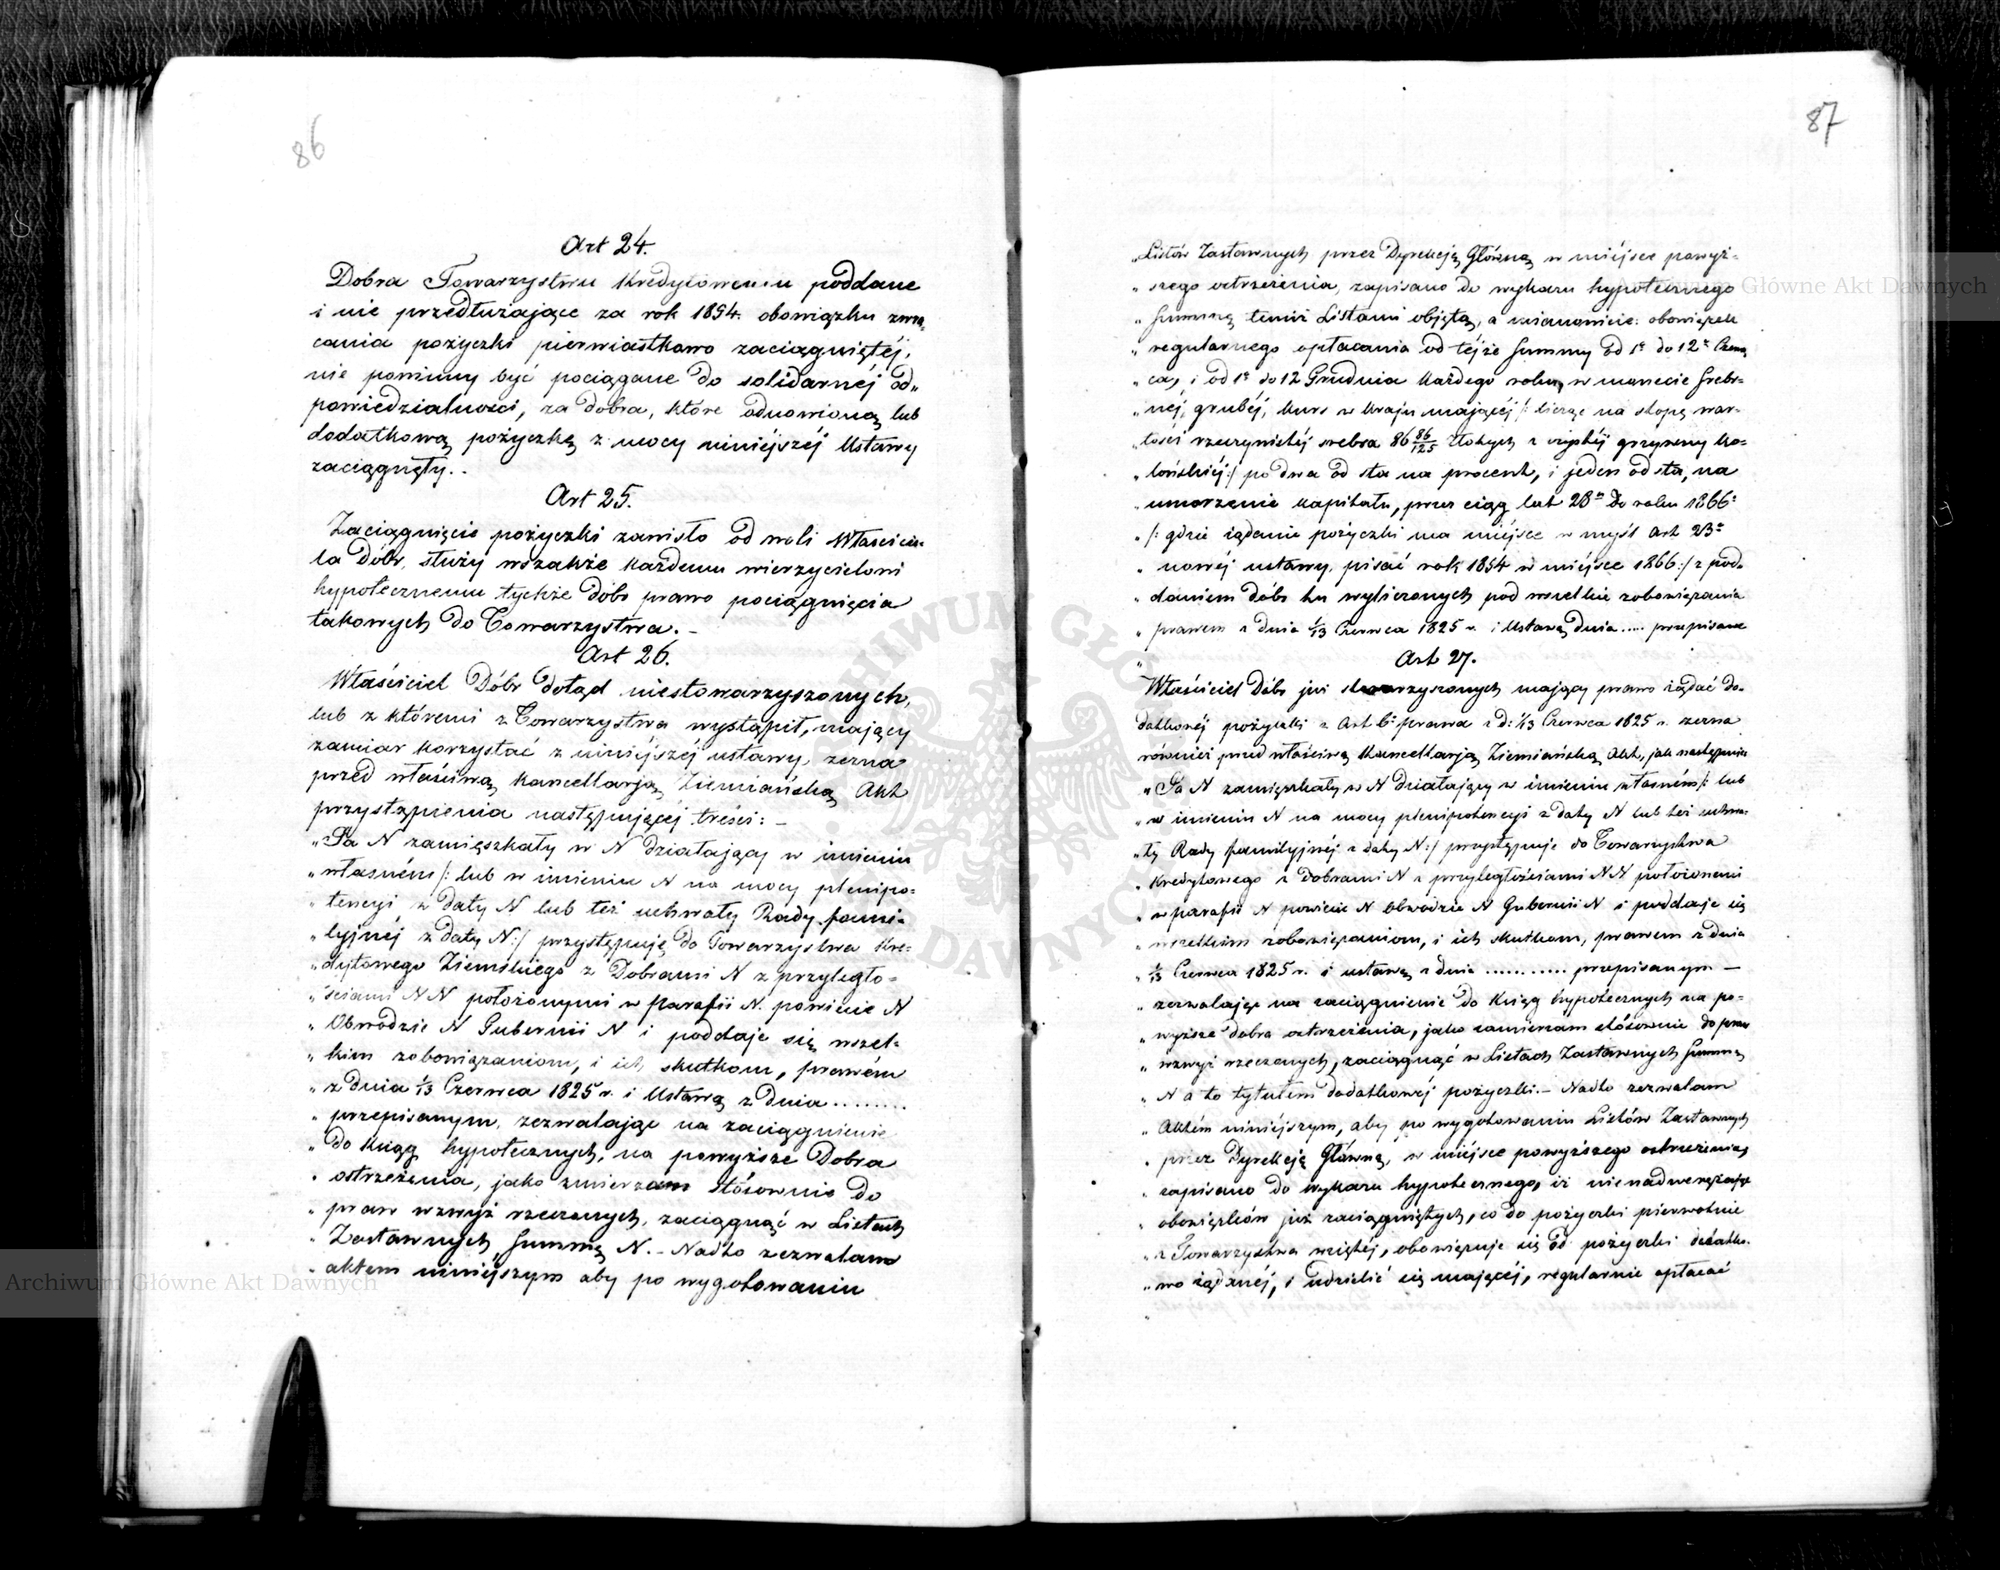 86
Art 24.
Dobra Towarzystwu Kredytowemu poddane
i nie przedłużające za rok 1854. obowiązku zwra„
cania pożyczki pierwiastkowo zaciągniętéj,
nie powinny być pociągane do solidarnéj od„
powiedzialności, za dobra, które odnowioną lub
dodatkową pożyczkę z mocy niniéjszéj Ustawy
zaciągnęły..
Art 25.
Zaciągnięcie pożyczki zawisło od woli Właścicie-
la Dóbr, służy wszakże każdemu wierzycielowi
hypotecznemu tychże dóbr prawo pociągnięcia
takowych do Towarzystwa. –
Art 26.
Właściciel Dóbr dotąd niestowarzyszonych,
lub z któremi z Towarzystwa wystąpił, mający
zamiar korzystać z niniéjszéj ustawy, zezna
przed właściwą Kancellarją Ziemiańską Akt
przystąpienia następującéj treści: –
„Ja N zamięszkały w N działający w imieniu
„własném /: lub w imieniu N na mocy plenipo-
„tencyi z daty N lub też uchwały Rady fami-
„lyjnéj z daty N:/ przystępuję do Towarzystwa Kre-
„dytowego Ziemskiego z Dobrami N z przyległo-
„ściami N N położonymi w Parafii N. powiecie N
„Obwodzie N Gubernii N i poddaje się wszel-
„kim zobowiązaniom, i ich skutkom, prawém
„z dnia 1/13 Czerwca 1825 r. i Ustawą z dnia ........
„przepisanym, zezwalając na zaciągnienie
„do Ksiąg hypotecznych, na powyższe Dobra
„ostrzeżenia, jako zmierzam stósownie do
„praw wzwyż rzeczonych, zaciągnąć w Listach
„Zastawnych Summę N. – Nadto zezwalam
„aktem niniejszym aby po wygotowaniu
87
„Listów Zastawnych przez Dyrekcją Główną w miéjsce powyż-
„szego ostrzeżenia, zapisano do wykazu hypotecznego
„Summę temiż Listami objętą, a mianowicie: obowiązek
„regularnego opłacania od téjże Summy od 1° do 12° Czerw
„ca, i od 1° do 12 Grudnia każdego roku, w monecie Srebr-
„néj, grubéj, kurs w kraju mającéj /: licząc na stopę war-
„tości rzeczywistéj srebra 86 86/125 złotych z czystéj grzywny ko-
„lońskiéj:/ po dwa od sta na procent, i jeden od sta, na
„umorzenie kapitału, przez ciąg lat 28iu do roku 1866°
„/: gdzie żądanie pożyczki ma miéjsce w myśl Art 23°
„nowéj ustawy, pisać rok 1854 w miéjsce 1866:/ z pod-
„daniem dóbr tu wyliczonych pod wszelkie zobowiązania
„prawem z dnia 1/13 Czerwca 1825 r. i Ustawą dnia ..... przepisane
Art 27.
Właściciel Dóbr już stowarzyszonych mający prawo żądać do-
datkowéj pożyczki z Art 6° prawa z d: 1/13 Czerwca 1825 r. zezna
również przed właściwą Kancellarją Ziemiańską Akt, jak następuie
„Ja N zamięszkały w N działający w imieniu własném /: lub
„w imieniu N na mocy plenipotencyi z daty N lub też uchwa-
„ły Rady familyjnéj z daty N:/ przystępuje do Towarzystwa
„Kredytowego z dobrami N z przyległościami N N położonemi
„w parafii N powiecie N Obwodzie N Gubernii N i poddaje się
„wszelkim zobowiązaniom, i ich skutkom, prawem z dnia
„1/13 Czerwca 1825 r. i ustawą z dnia ........... przepisanym –
„zezwalając na zaciągnienie do Ksiąg hypotecznych na po-
„wyższe dobra ostrzeżenia, jako zamierzam stósownie do praw
„wzwyż rzeczonych, zaciągnąć w Listach Zastawnych Summę
„N a to tytułem dodatkowéj pożyczki. – Nadto zezwalam
„Aktém niniéjszym, aby po wygotowaniu Listów Zastawnych
„przez Dyrekcją Główną, w miéjsce powyższego ostrzeżenia,
„zapisano do wykazu hypotecznego, iż nienadwerężając
„obowiązków już zaciągniętych, co do pożyczki pierwotnie
„z Towarzystwa wziętéj, obowiązuje się od pożyczki dodatko-
„wo żądanéj, i udzielić się mającéj, regularnie opłacać
Archiwum Główne Akt Dawnych
Archiwum Główne Akt Dawnych
ARCHIWUM GŁÓWNE AKT DAWNYCH